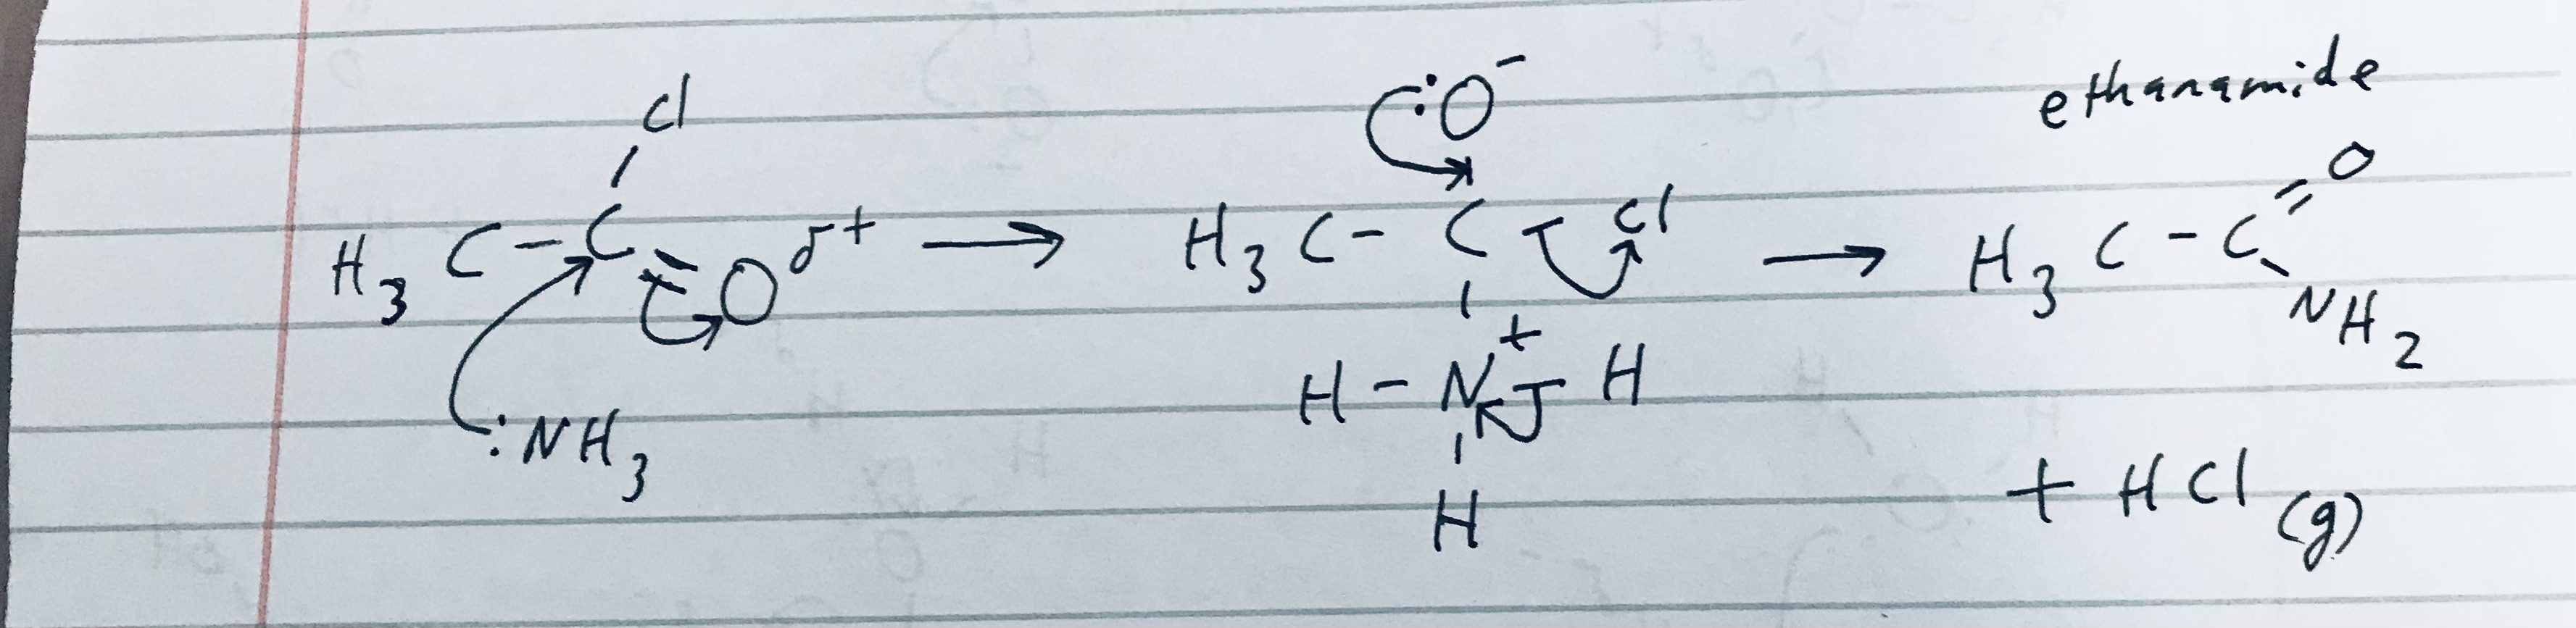 Cl
H₃C-C=O δ+ → 
:NH₃
:O⁻
H₃C-C Cl →
H-N⁺ H
H
ethanamide
H₃C-C=O
NH₂
+ HCl (g)